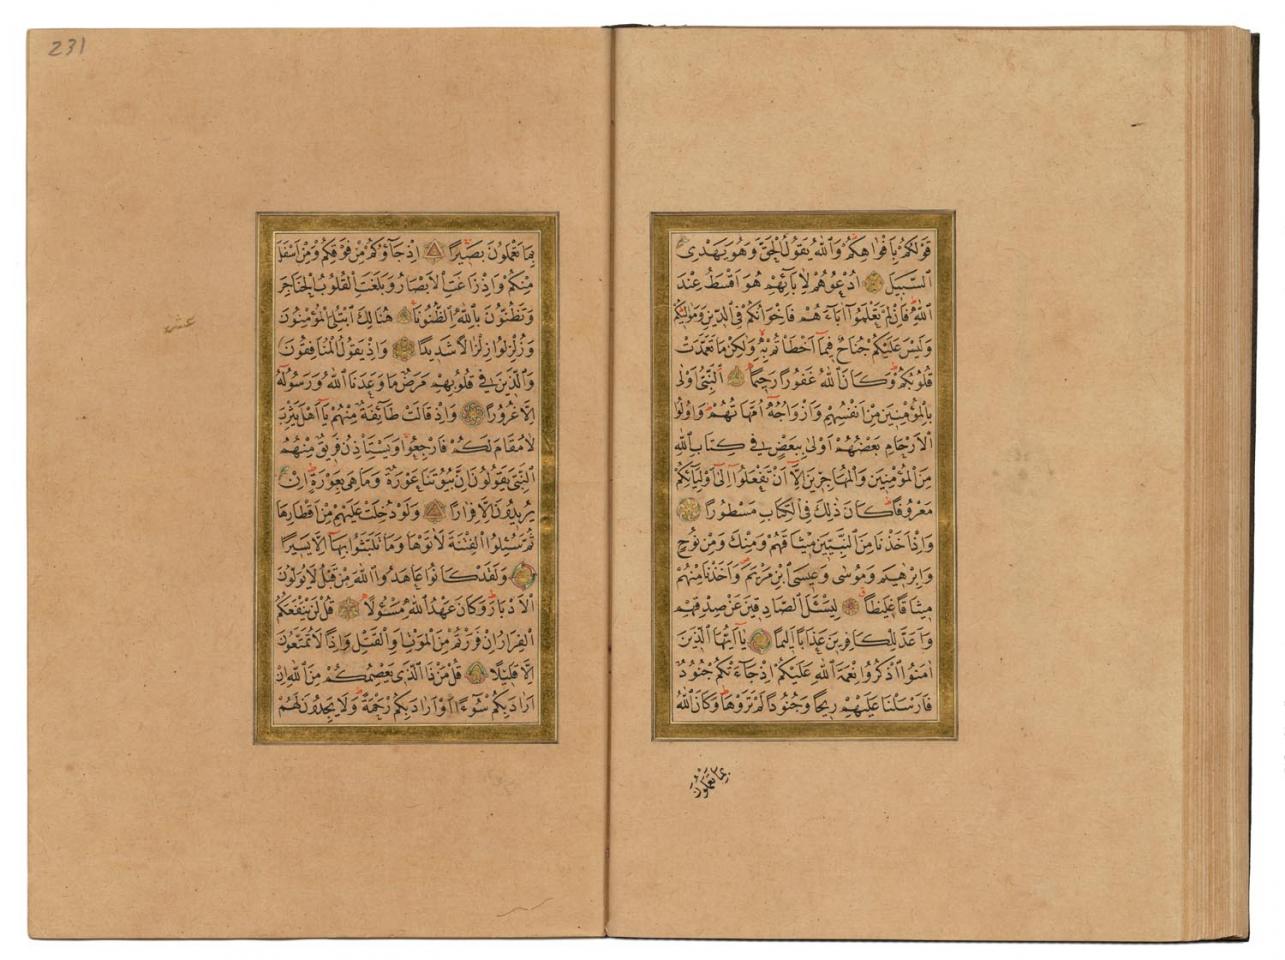 قَوْلُكُمْ بِاَفْوَاهِكُمْ وَاللّٰهُ يَقُولُ الْحَقَّ وَهُوَ يَهْدِى
السَّبِيلَ اُدْعُوهُمْ لِاٰبَائِهِمْ هُوَ اَقْسَطُ عِنْدَ
اللّٰهِ فَاِنْ لَمْ تَعْلَمُوا اٰبَاءَهُمْ فَاِخْوَانُكُمْ فِى الدِّينِ وَمَوَالِيكُمْ
وَلَيْسَ عَلَيْكُمْ جُنَاحٌ فِيمَا اَخْطَاْتُمْ بِهِ وَلٰكِنْ مَا تَعَمَّدَتْ
قُلُوبُكُمْ وَكَانَ اللّٰهُ غَفُورًا رَحِيمًا اَلنَّبِىُّ اَوْلٰى
بِالْمُؤْمِنِينَ مِنْ اَنْفُسِهِمْ وَاَزْوَاجُهُ اُمَّهَاتُهُمْ وَاُولُوا
الْاَرْحَامِ بَعْضُهُمْ اَوْلٰى بِبَعْضٍ فِى كِتَابِ اللّٰهِ
مِنَ الْمُؤْمِنِينَ وَالْمُهَاجِرِينَ اِلَّا اَنْ تَفْعَلُوا اِلٰى اَوْلِيَائِكُمْ
مَعْرُوفًا كَانَ ذٰلِكَ فِى الْكِتَابِ مَسْطُورًا
وَاِذْ اَخَذْنَا مِنَ النَّبِيِّينَ مِيثَاقَهُمْ وَمِنْكَ وَمِنْ نُوحٍ
وَاِبْرٰهِيمَ وَمُوسٰى وَعِيسَى ابْنِ مَرْيَمَ وَاَخَذْنَا مِنْهُمْ
مِيثَاقًا غَلِيظًا لِيَسْـَٔلَ الصَّادِقِينَ عَنْ صِدْقِهِمْ
وَاَعَدَّ لِلْكَافِرِينَ عَذَابًا اَلِيمًا يَا اَيُّهَا الَّذِينَ
اٰمَنُوا اذْكُرُوا نِعْمَةَ اللّٰهِ عَلَيْكُمْ اِذْ جَاءَتْكُمْ جُنُودٌ
فَاَرْسَلْنَا عَلَيْهِمْ رِيحًا وَجُنُودًا لَمْ تَرَوْهَا وَكَانَ اللّٰهُ
بِمَا تَعْمَلُونَ
231
بِمَا تَعْمَلُونَ بَصِيرًا اِذْ جَاؤُكُمْ مِنْ فَوْقِكُمْ وَمِنْ اَسْفَلَ
مِنْكُمْ وَاِذْ زَاغَتِ الْاَبْصَارُ وَبَلَغَتِ الْقُلُوبُ الْحَنَاجِرَ
وَتَظُنُّونَ بِاللّٰهِ الظُّنُونَا هُنَالِكَ ابْتُلِىَ الْمُؤْمِنُونَ
وَزُلْزِلُوا زِلْزَالًا شَدِيدًا وَاِذْ يَقُولُ الْمُنَافِقُونَ
وَالَّذِينَ فِى قُلُوبِهِمْ مَرَضٌ مَا وَعَدَنَا اللّٰهُ وَرَسُولُهُ
اِلَّا غُرُورًا وَاِذْ قَالَتْ طَائِفَةٌ مِنْهُمْ يَا اَهْلَ يَثْرِبَ
لَا مُقَامَ لَكُمْ فَارْجِعُوا وَيَسْتَاْذِنُ فَرِيقٌ مِنْهُمُ
النَّبِىَّ يَقُولُونَ اِنَّ بُيُوتَنَا عَوْرَةٌ وَمَا هِىَ بِعَوْرَةٍ اِنْ
يُرِيدُونَ اِلَّا فِرَارًا وَلَوْ دُخِلَتْ عَلَيْهِمْ مِنْ اَقْطَارِهَا
ثُمَّ سُئِلُوا الْفِتْنَةَ لَاٰتَوْهَا وَمَا تَلَبَّثُوا بِهَا اِلَّا يَسِيرًا
وَلَقَدْ كَانُوا عَاهَدُوا اللّٰهَ مِنْ قَبْلُ لَا يُوَلُّونَ
الْاَدْبَارَ وَكَانَ عَهْدُ اللّٰهِ مَسْؤُلًا قُلْ لَنْ يَنْفَعَكُمُ
الْفِرَارُ اِنْ فَرَرْتُمْ مِنَ الْمَوْتِ اَوِ الْقَتْلِ وَاِذًا لَا تُمَتَّعُونَ
اِلَّا قَلِيلًا قُلْ مَنْ ذَا الَّذِى يَعْصِمُكُمْ مِنَ اللّٰهِ اِنْ
اَرَادَ بِكُمْ سُوءًا اَوْ اَرَادَ بِكُمْ رَحْمَةً وَلَا يَجِدُونَ لَهُمْ
عشر